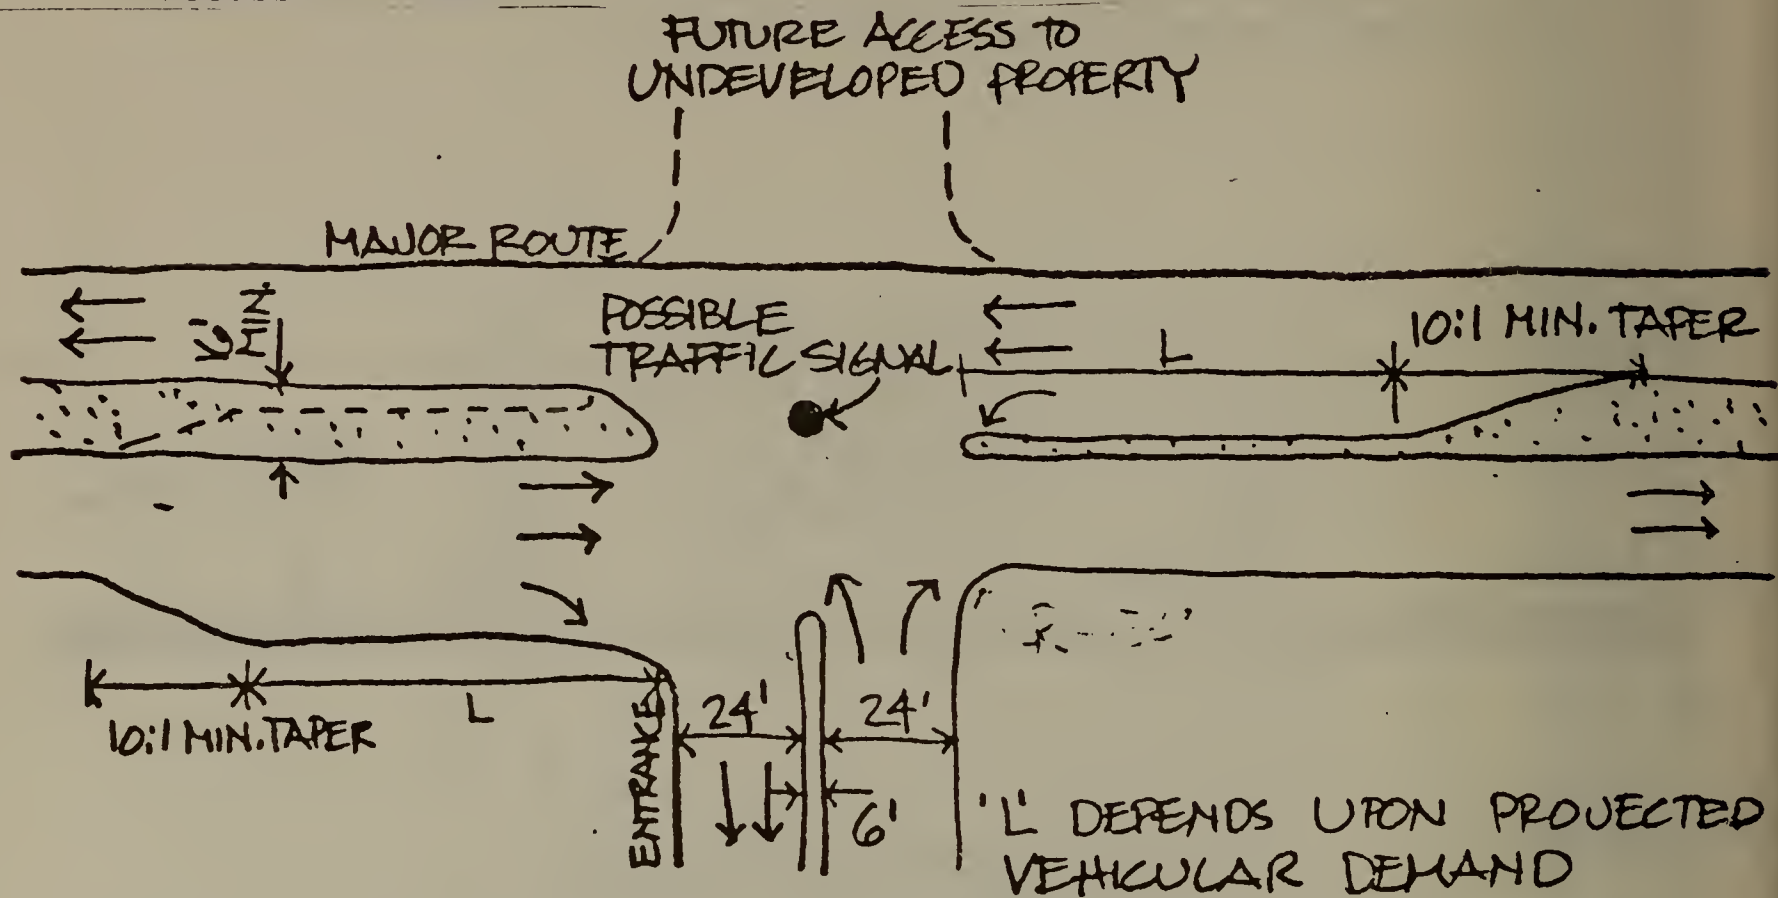 FUTURE ACCESS TO
UNDEVELOPED PROPERTY
MAJOR ROUTE
MIN.
POSSIBLE
TRAFFIC SIGNAL
L
10:1 MIN. TAPER
10:1 MIN. TAPER
L
ENTRANCE
24'
24'
6'
'L' DEPENDS UPON PROJECTED
VEHICULAR DEMAND